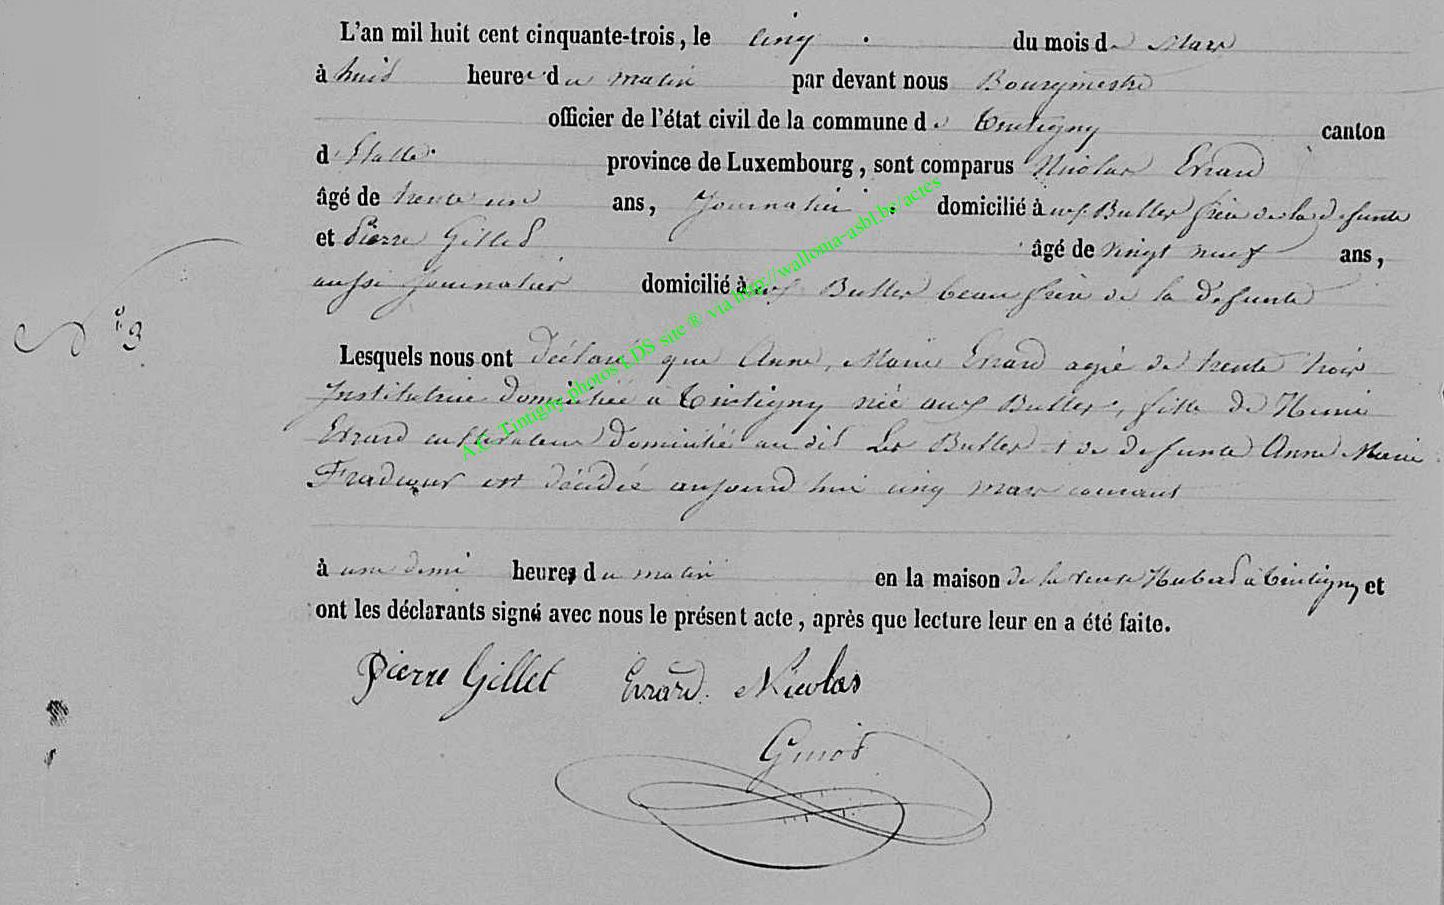 L'an mil huit cent cinquante-trois, le cinq du mois de Mars
à huit heures du matin par devant nous Bourgmestre
officier de l'état civil de la commune de Tintigny canton
d'Etalle province de Luxembourg, sont comparus Nicolas Evrard
âgé de trente un ans, Journalier domicilié à aux Bulles frère de la defunte
et Pierre Gillet âgé de vingt neuf ans,
aussi journalier domicilié à aux Bulles beau frère de la defunte
N° 3
Lesquels nous ont déclaré que Anne, Marie Evrard agée de trente trois
Institutrice domiciliée a Tintigny née aux Bulles, fille de
Evrard cultivateur domicilié au dit Les Bulles et de defunte Anne Marie
est décédée aujourd'hui cinq mars courant
à une demi heures du matin en la maison de la veuve Hubert à Tintigny et
ont les déclarants signé avec nous le présent acte, après que lecture leur en a été faite.
Pierre Gillet Evrard. Nicolas
A.C. Tintigny photos LDS site ® via http://wallonia-asbl.be/actes